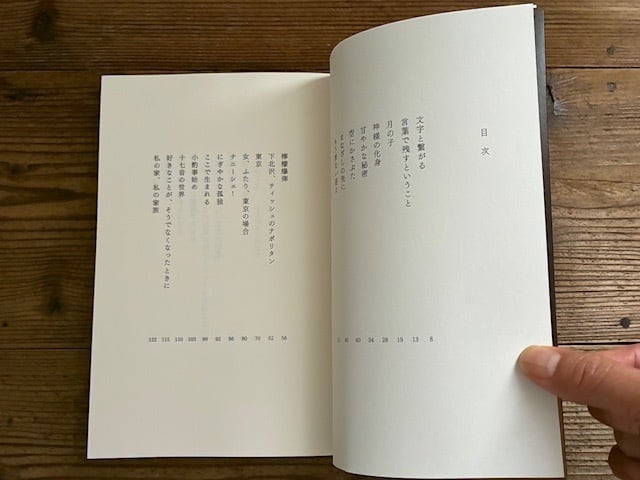 目次
文字と繋がる
言葉で残すということ
月の子
神様の化身
甘やかな秘密
空にかさぶた
まなざしの先に
8
13
19
28
34
40
檸檬爆弾
下北沢、ティッシュのナポリタン
東京
女、ふたり、東京の場合
ナニーシュ!
にぎやかな孤独
ここで生まれる
小酌事始め
十七音の世界
好きなことが、そうでなくなったときに
私の家、私の家族
54
62
70
80
86
92
99
103
109
115
122